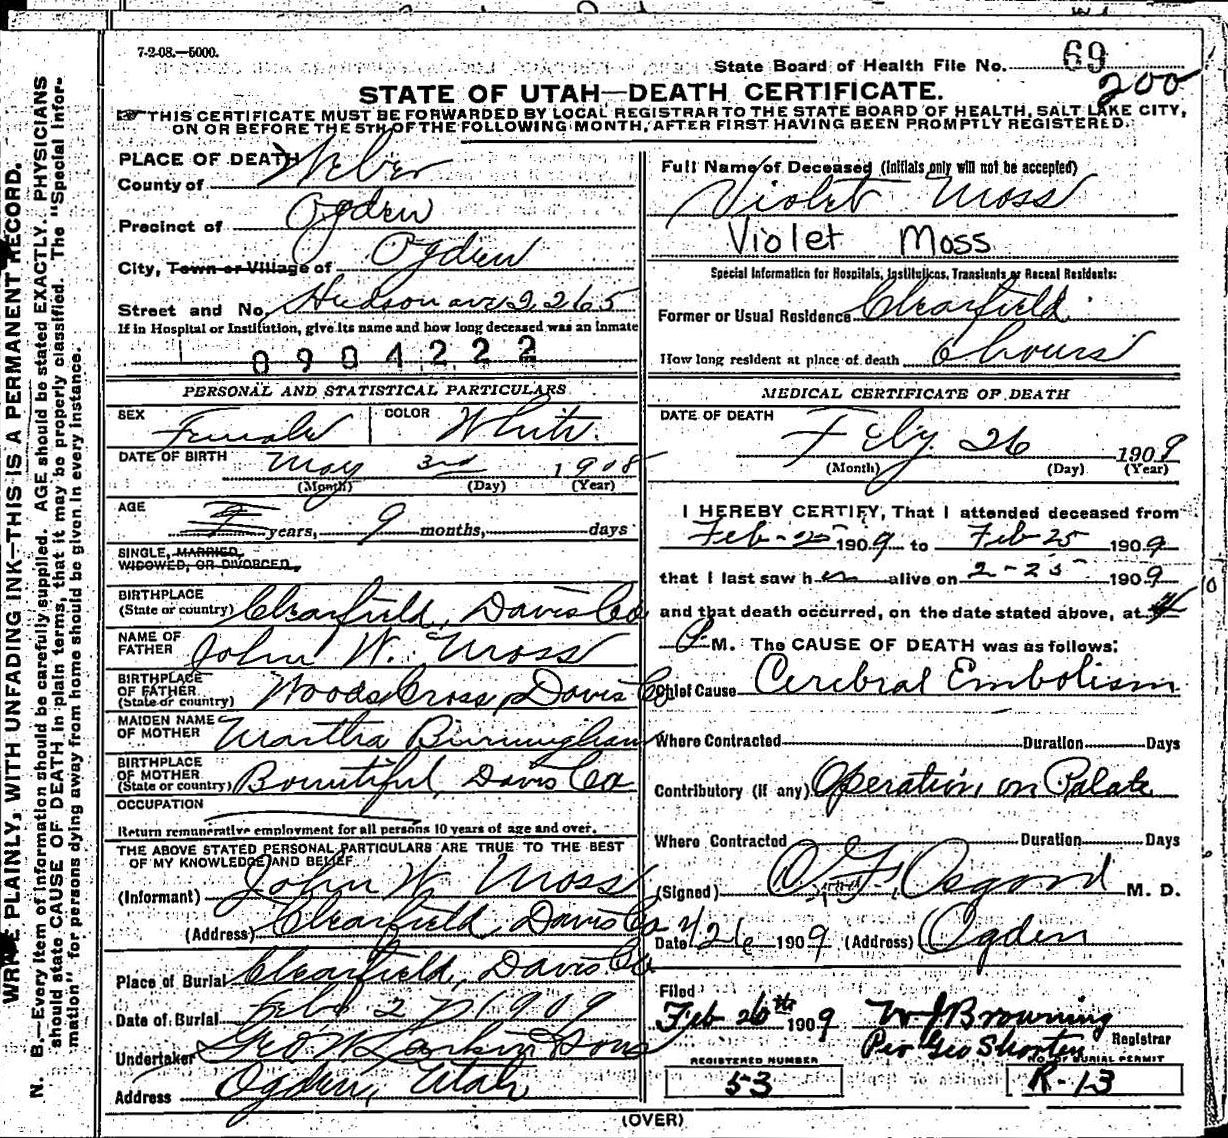 7-2-08.—5000.
State Board of Health File No. 69
200
STATE OF UTAH—DEATH CERTIFICATE.
THIS CERTIFICATE MUST BE FORWARDED BY LOCAL REGISTRAR TO THE STATE BOARD OF HEALTH, SALT LAKE CITY,
ON OR BEFORE THE 5TH OF THE FOLLOWING MONTH, AFTER FIRST HAVING BEEN PROMPTLY REGISTERED.
PLACE OF DEATH
County of Weber
Precinct of Ogden
City, Town or Village of Ogden
Street and No. Hudson ave 2265
If in Hospital or Institution, give its name and how long deceased was an inmate
0904222
PERSONAL AND STATISTICAL PARTICULARS
SEX Female COLOR White.
DATE OF BIRTH May 3rd 1908
(Month) (Day) (Year)
AGE years, 9 months, days
SINGLE, MARRIED,
WIDOWED, OR DIVORCED.
BIRTHPLACE
(State or country) Clearfield, Davis Co
NAME OF
FATHER John W. Moss
BIRTHPLACE
OF FATHER
(State or country) Woods Cross, Davis Co
MAIDEN NAME
OF MOTHER Martha Burningham
BIRTHPLACE
OF MOTHER
(State or country) Bountiful, Davis Co
OCCUPATION
Return remunerative employment for all persons 10 years of age and over.
THE ABOVE STATED PERSONAL PARTICULARS ARE TRUE TO THE BEST
OF MY KNOWLEDGE AND BELIEF
(Informant) John W. Moss
(Address) Clearfield Davis Co
Place of Burial Clearfield, Davis Co
Date of Burial Feb 27 1909
Undertaker Geo W Larkin & Sons
Address Ogden, Utah
Full Name of Deceased (Initials only will not be accepted)
Violet Moss
Violet Moss
Special Information for Hospitals, Institutions, Transients or Recent Residents:
Former or Usual Residence Clearfield
How long resident at place of death 6 hours
MEDICAL CERTIFICATE OF DEATH
DATE OF DEATH Feby. 26 1909
(Month) (Day) (Year)
I HEREBY CERTIFY, That I attended deceased from
Feb-25 1909 to Feb-25 1909
that I last saw her alive on 2-25 1909
and that death occurred, on the date stated above, at
M. The CAUSE OF DEATH was as follows:
Chief Cause Cerebral Embolism
Where Contracted Duration Days
Contributory (if any) Operation on Palate
Where Contracted Duration Days
(Signed) O. F. Osgood M. D.
Date 2/26 1909 (Address) Ogden
Filed
Feb 26th 1909 W J Browning
Registrar
Per Geo Shorten
REGISTERED NUMBER
53
NO. OF BURIAL PERMIT
R-13
(OVER)
WRITE PLAINLY, WITH UNFADING INK—THIS IS A PERMANENT RECORD.
N. B.—Every item of information should be carefully supplied. AGE should be stated EXACTLY. PHYSICIANS
should state CAUSE OF DEATH in plain terms, that it may be properly classified. The "Special Infor-
mation" for persons dying away from home should be given in every instance.